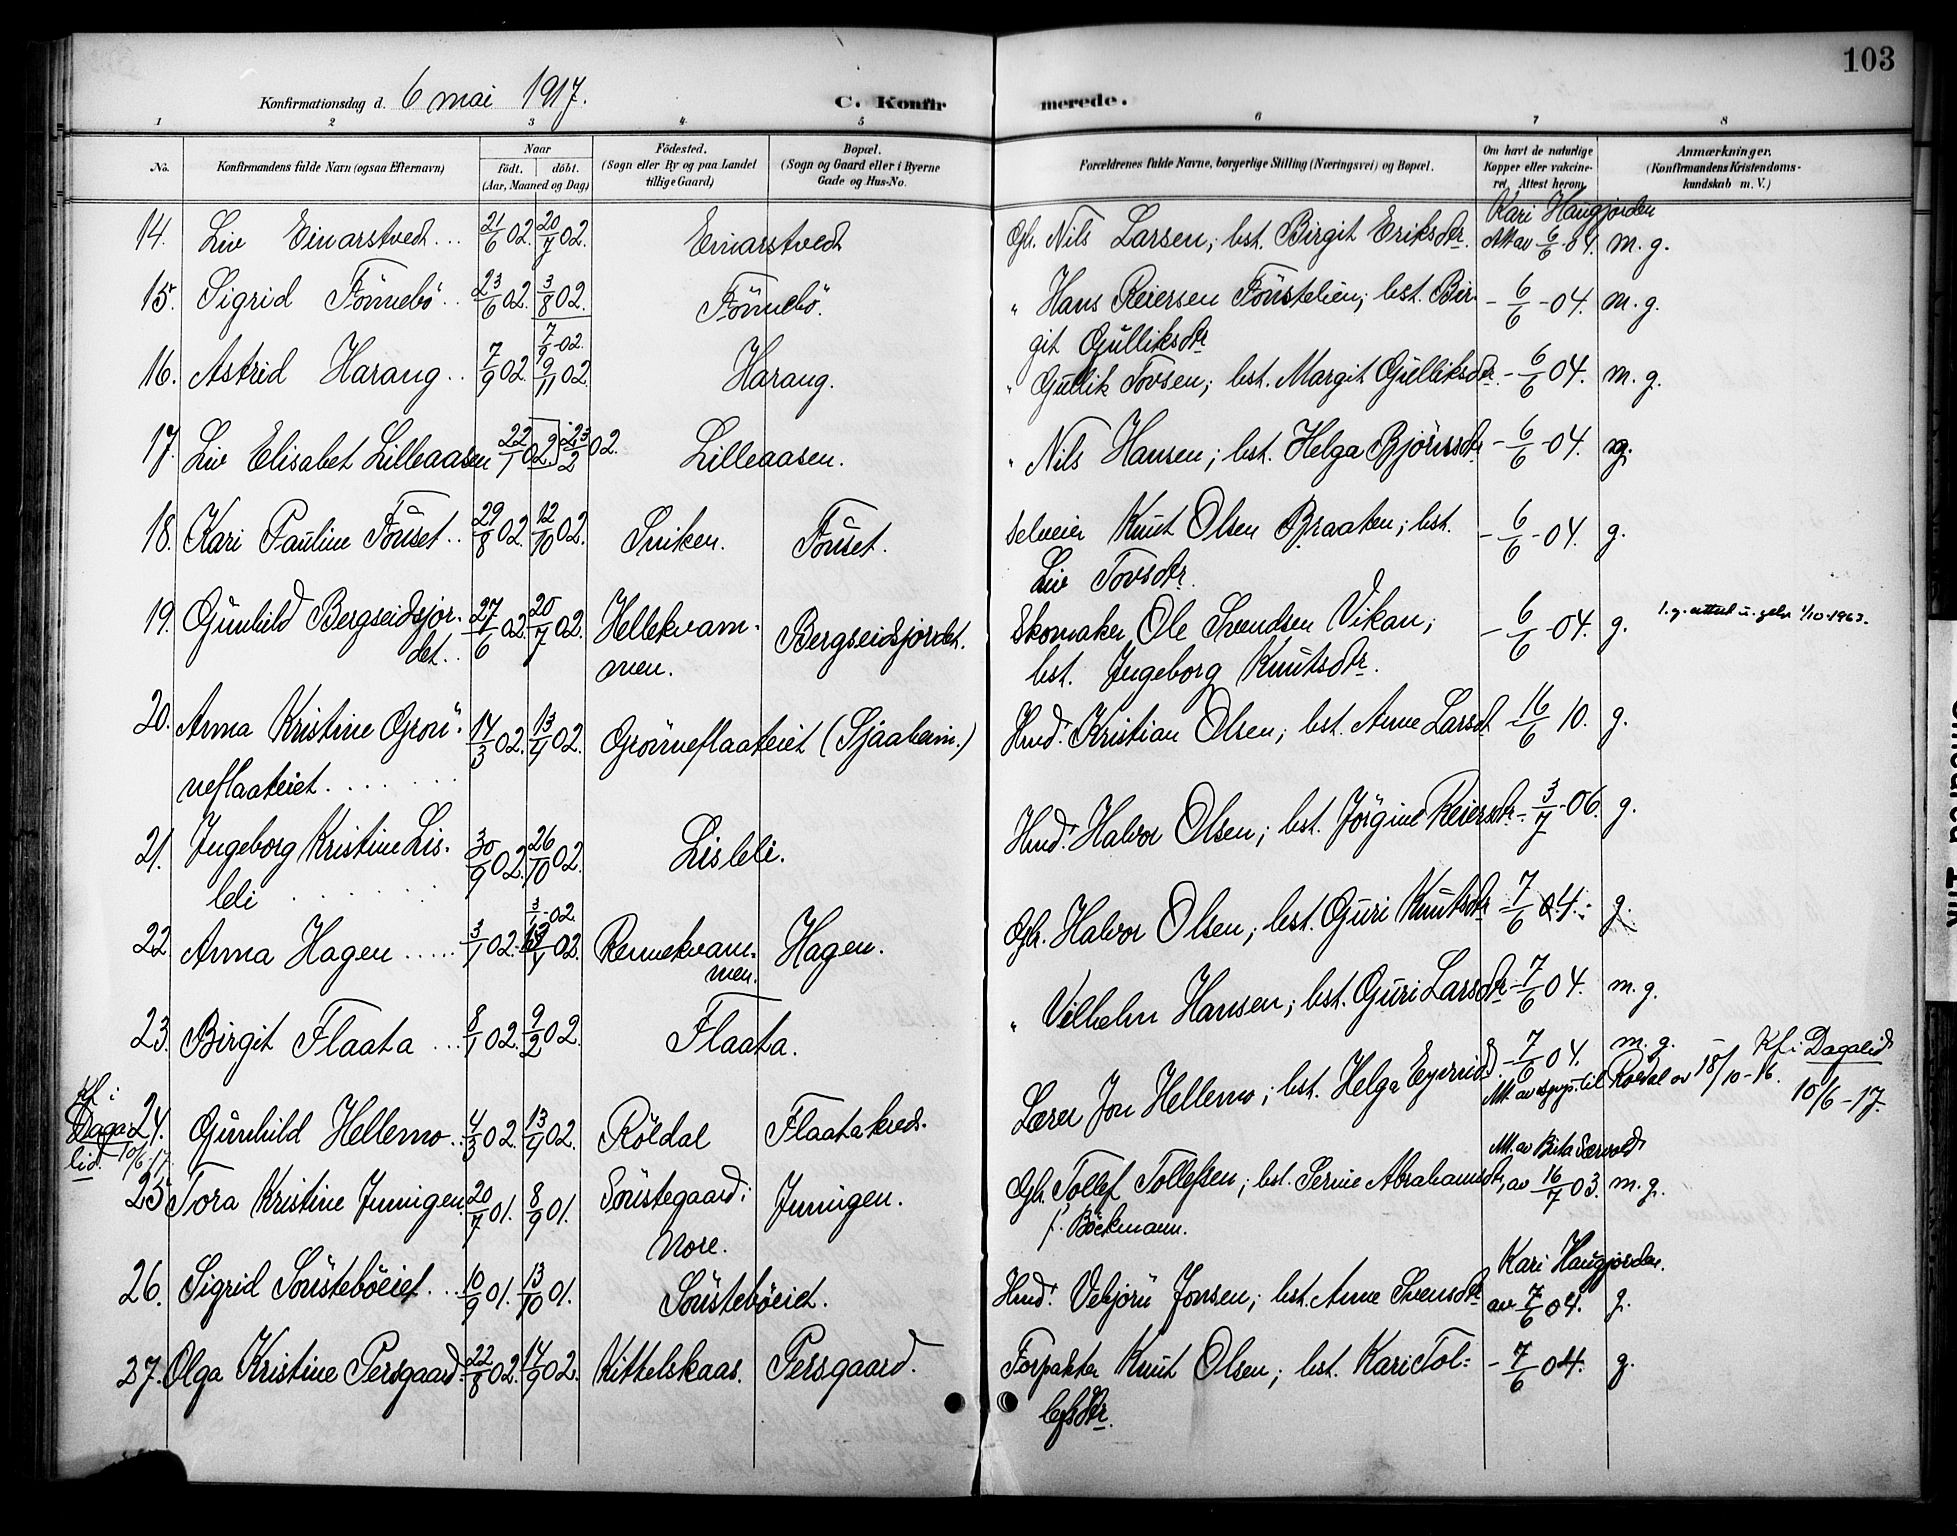 103
Konfirmationsdag d. 6 mai 1917. C. Konfirmerede.
1 2 3 4 5 6 7 8
No. Konfirmandens fulde Navn (ogsaa Efternavn) Naar født. døbt. (Aar, Maaned og Dag) Fødested. (Sogn eller By og paa Landet tillige Gaard) Bopæl. (Sogn og Gaard eller i Byerne Gade og Hus-No. Forældrenes fulde Navne, borgerlige Stilling (Næringsvei) og Bopæl. Om havt de naturlige Kopper eller vakcineret, Attest herom. Anmærkninger, (Konfirmandens Kristendomskundskab m. V.)
Kari Haugjorden
14. Liv Einarstvedt... 21/6 02. 20/7 02. Einarstvedt Gbr. Nils Larsen; hst. Birgit Eriksdtr. Att av 6/6 04. m. g.
15. Sigrid Fönnebö.. 23/6 02. 3/8 02. Fönnebö. " Hans Reiersen Fönstelien; hst. Bir- - 6/6 -04. m. g.
git Gulliksdtr
7/9-02.
16. Astrid Harang.. 7/9 02. 9/11 02. Harang. " Gullik Tovsen; hst. Margit Gulliksdtr. - 6/6 04. m. g.
17. Liv Elisabet Lilleaasen 22/1 02. 23/2 02. Lilleaasen. " Nils Hansen; hst. Helga Björnsdtr - 6/6 -04. g.
18. Kari Pauline Fönset.. 29/8 02. 12/10 02. Sniken. Fönset. Selveier Knut Olsen Braaten; hst. - 6/6 -04. g.
Liv Tovsdtr.
19. Gunhild Bergseidsjor- 27/6 02. 20/7 02. Hellekvam- Bergseidsjordet. Skomaker Ole Svendsen Vikan; - 6/6 -04. g. 1/10-1963.
det.. men. hst. Ingeborg Knutsdtr.
20. Anna Kristine Grön- 14/3 02. 13/4 02. Grönneflaateiet (Sjaaheim.) Hmd. Kristian Olsen; hst. Anne Larsdt. - 16/6 10. g.
neflaateiet.....
21. Ingeborg Kristine Lis- 30/9 02. 26/10 02. Lisleli. Hmd. Halvor Olsen; hst. Jörgine Reiersdtr - 3/7 -06. g.
leli
3/1-02.
22. Anna Hagen..... 3/1 02. 02. Rennekvam- Hagen. Gbr. Halvor Olsen; hst. Guri Knutsdtr 7/6 04. g.
men.
23. Birgit Flaata... 8/1 02. 9/2 02. Flaata. " Vilhelm Hansen; hst. Guri Larsdtr - 7/6 04. m. g.
Kf. i Dagalid 10/6-17. 24. Gunhild Hellemo.. 4/3 02. 13/4 02. Röldal Flaatakreds. Lærer Jon Hellemo; hst. Helga Eyvindsd. - 7/6 04. m. g. Kf. i Dagalid
Röldal av 18/10-16. 10/6-17.
Att. av Brita Særvold
25. Tora Kristine Juningen. 20/7 01. 8/9 01. Sönstegaard i Juningen. Gbr. Tollef Tollefsen; hst. Serine Abrahamsdtr, av 16/7 03. m. g.
Nore. f. Böckmann.
Kari Haugjorden.
26. Sigrid Sönsteböeiet... 10/9 01. 13/10 01. Sönsteböeiet. Hmd. Vebjörn Jonsen; hst. Anne Svensdtr av 7/6 04. g.
27. Olga Kristine Persgaard. 22/8 02. 14/9 02. Kittelskaas. Persgaard. Forpakter Knut Olsen; hst. Kari Tol- - 7/6 04. g.
lefsdtr.